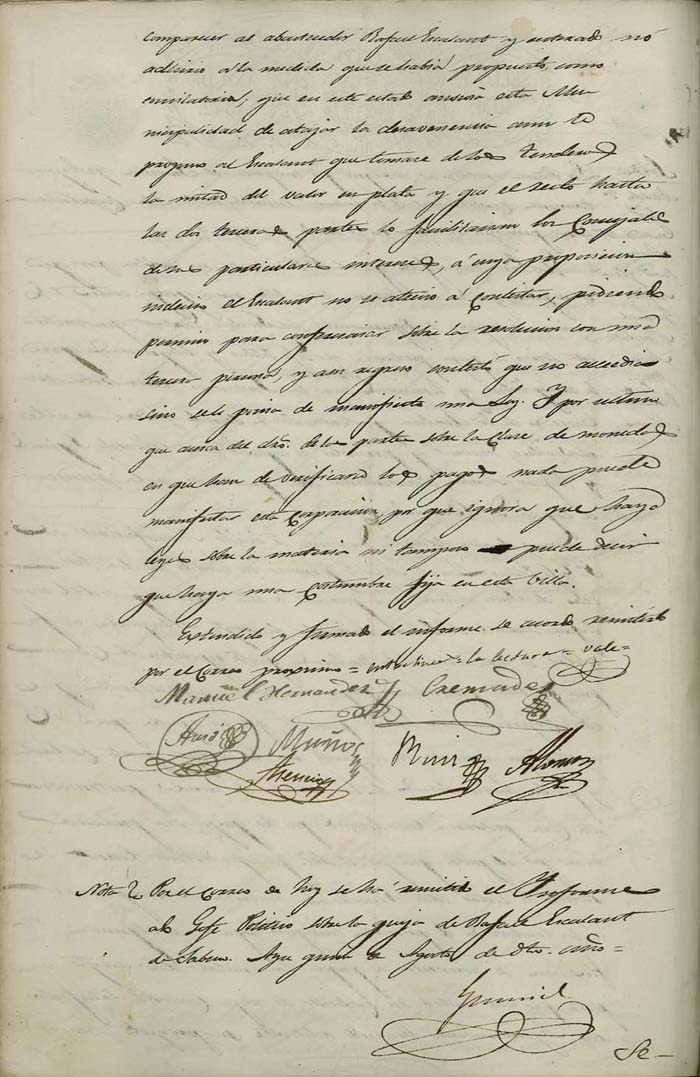 comparecer al abastecedor Rafael Escalant y enterado nó
adirio á la medida que se habia propuesto, como
conciliatoria; que en este estado ansiosa esta Mu-
nicipalidad de atajar la desavenencia
propuso al Escalant que tomase de los tenderos
la mitad del valor en plata y que el resto hasta
las dos terceras partes lo facilitarian los Concejales
de sus particulares intereses, á cuya proposicion
indeciso el Escalant no se atrevio á contestar, pidiendo
permiso para conferenciar sobre la resolucion con una
tercera persona, y a su regreso contestó que no accedia
sino se le ponia de manifiesto una Ley. Y por ultimo
que acerca del dro. de las partes sobre la clase de moneda
en que han de verificarse los pagos nada puede
manifestar esta Corporacion, por que ignora que haya
leyes sobre la materia ni tampoco puede decir
que haya una costumbre fija en esta Villa.
Extendido y firmado el informe se acordó remitirlo
por el Correo proximo = entre lineas = la lectura = vale =
Manuel Hernandez Cremades
Muños Ruiz
Asencio Alonso
Nota Por el Correo de hoy se há remitido el Informe
al Gefe Politico sobre la queja de Rafael Escalant
de Agosto de dho. año =
Se-